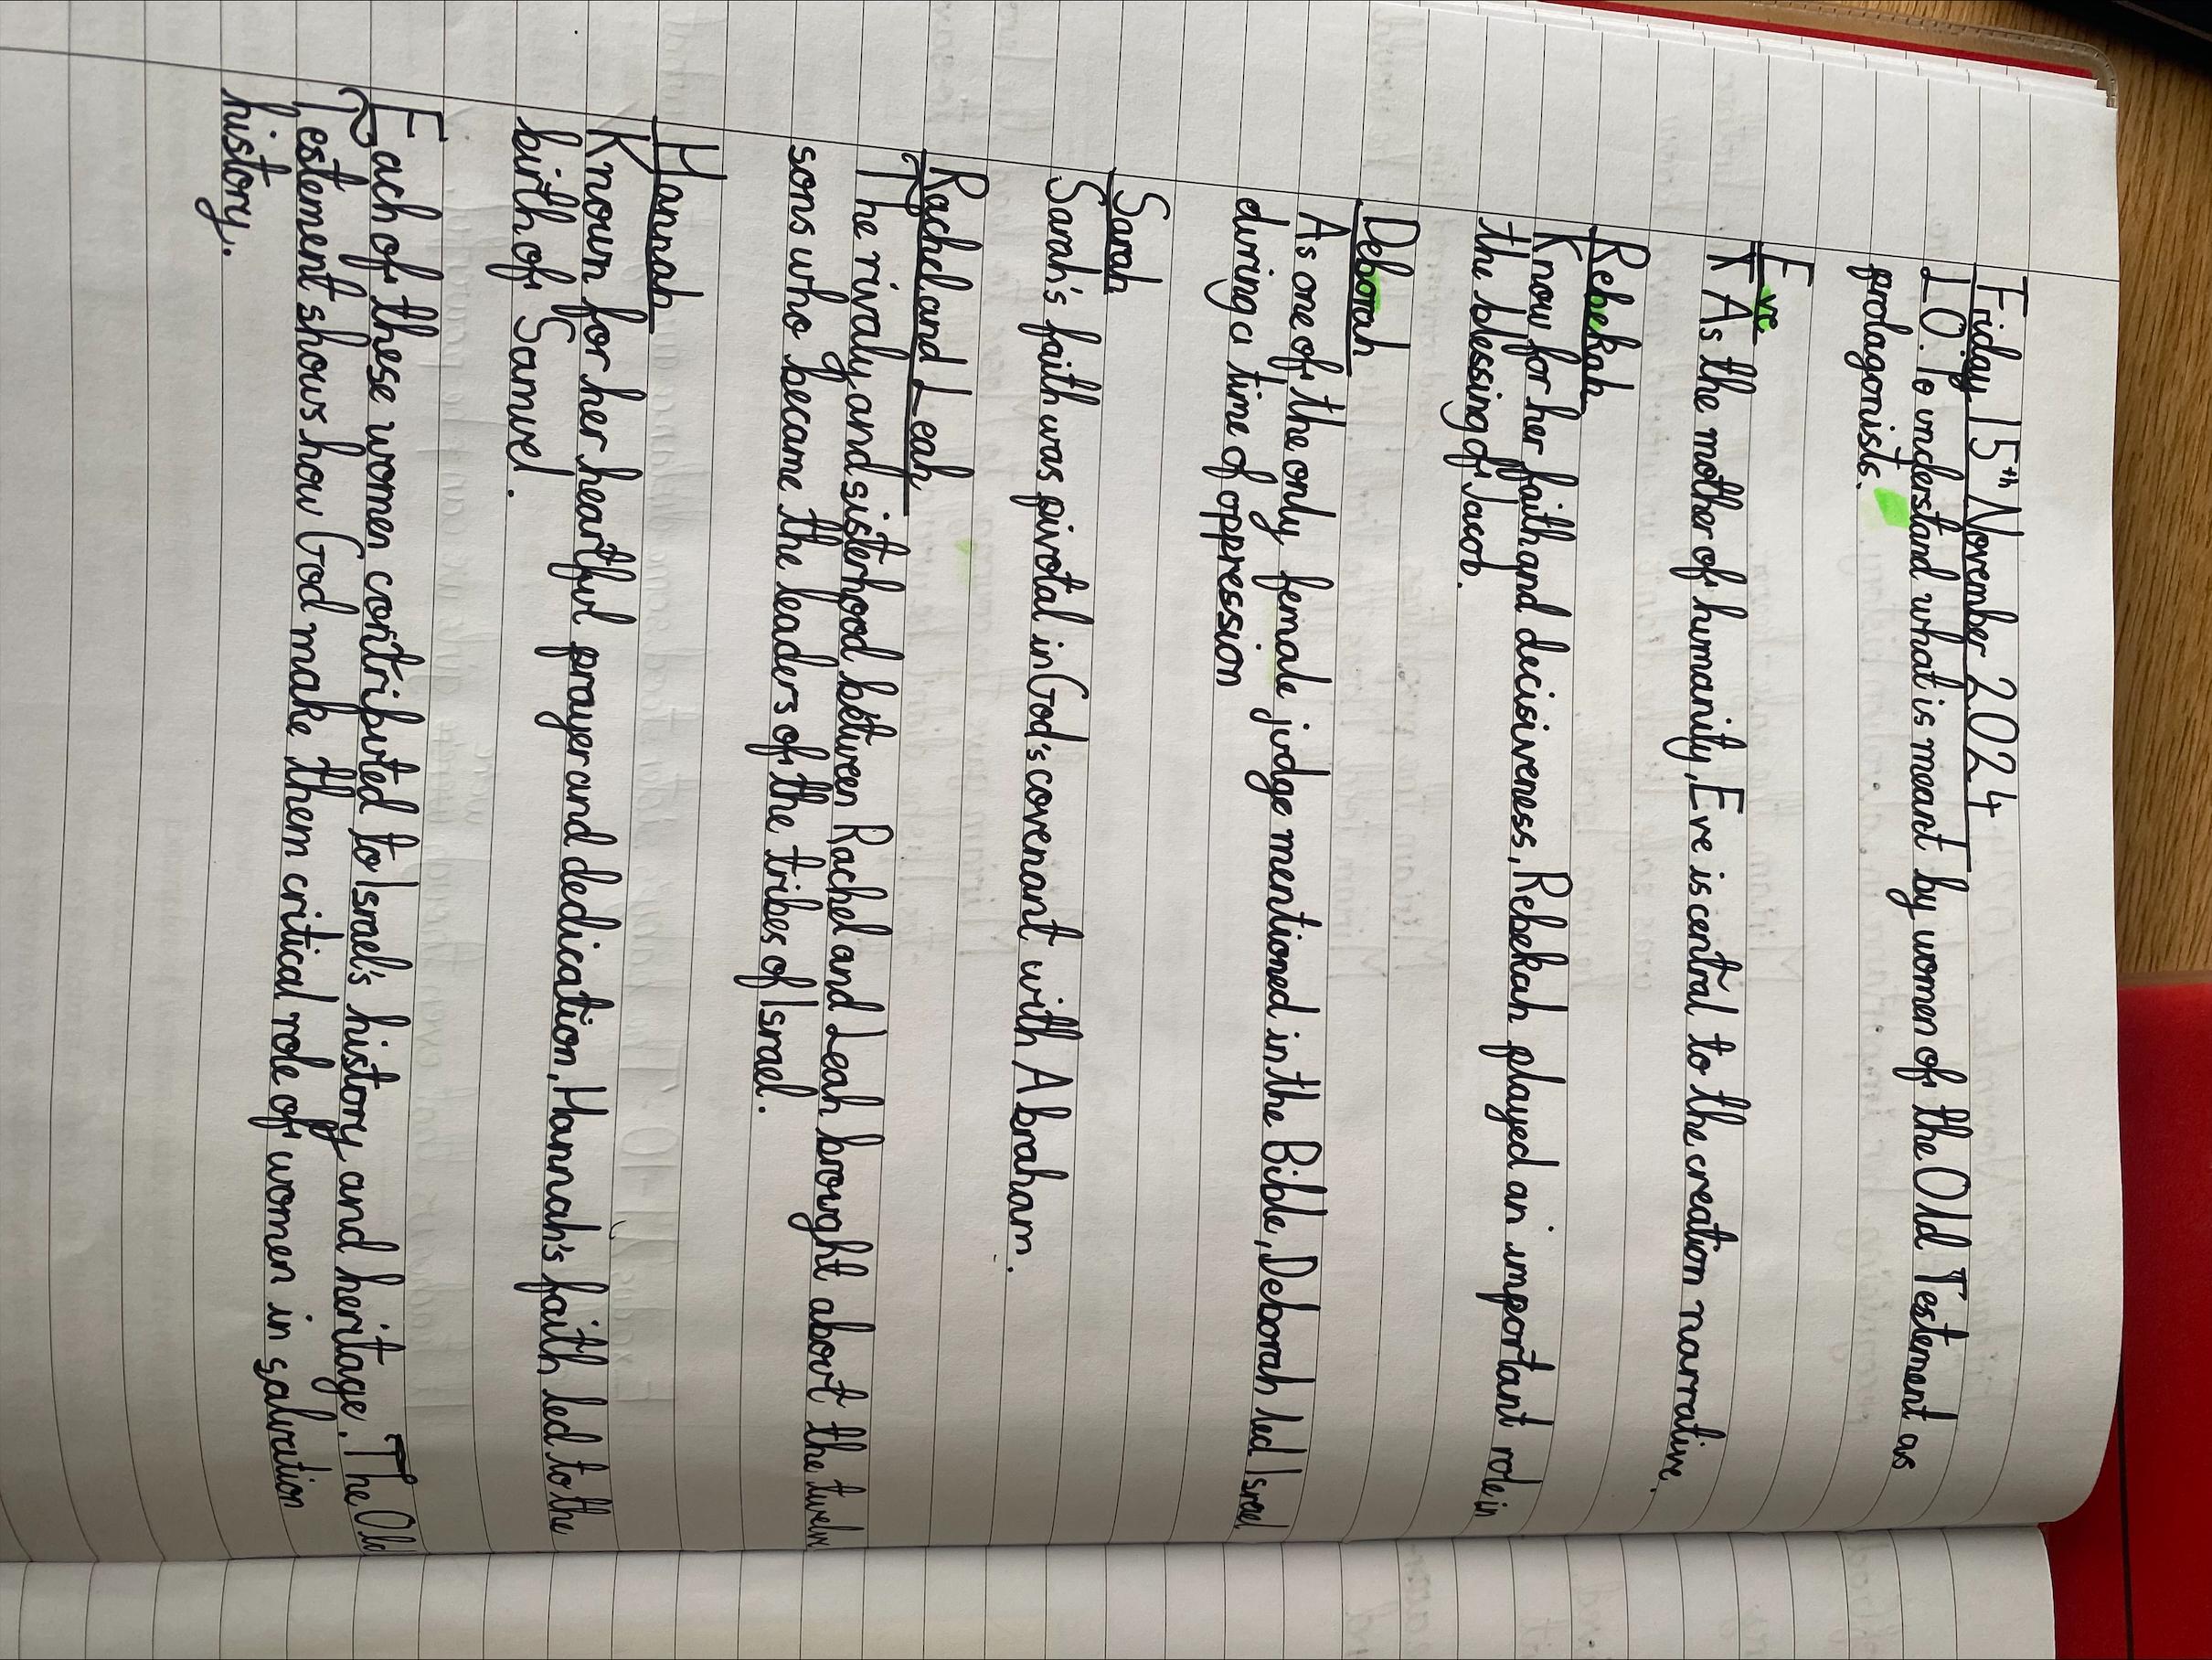 Friday 15th November 2024
LO: To understand what is meant by women of the Old Testement as
protagonists.
Eve
As the mother of humanity, Eve is central to the creation narrative.
Rebekah
Know for her faith and decisiveness, Rebekah played an important role in
the blessing of Jacob.
Deborah
As one of the only female judge mentioned in the Bible, Deborah led Israel
during a time of oppression
Sarah
Sarah's faith was pivotal in God's covenant with Abraham.
Rachel and Leah
The rivaly and sisterhood between Rachel and Leah brought about the twelve
sons who became the leaders of the tribes of Israel.
Hannah
Known for her heartful prayer and dedication, Hannah's faith led to the
birth of Samuel.
Each of these women contributed to Israel's history and heritage. The Old
Testement shows how God make them critical role of women in salvation
history.